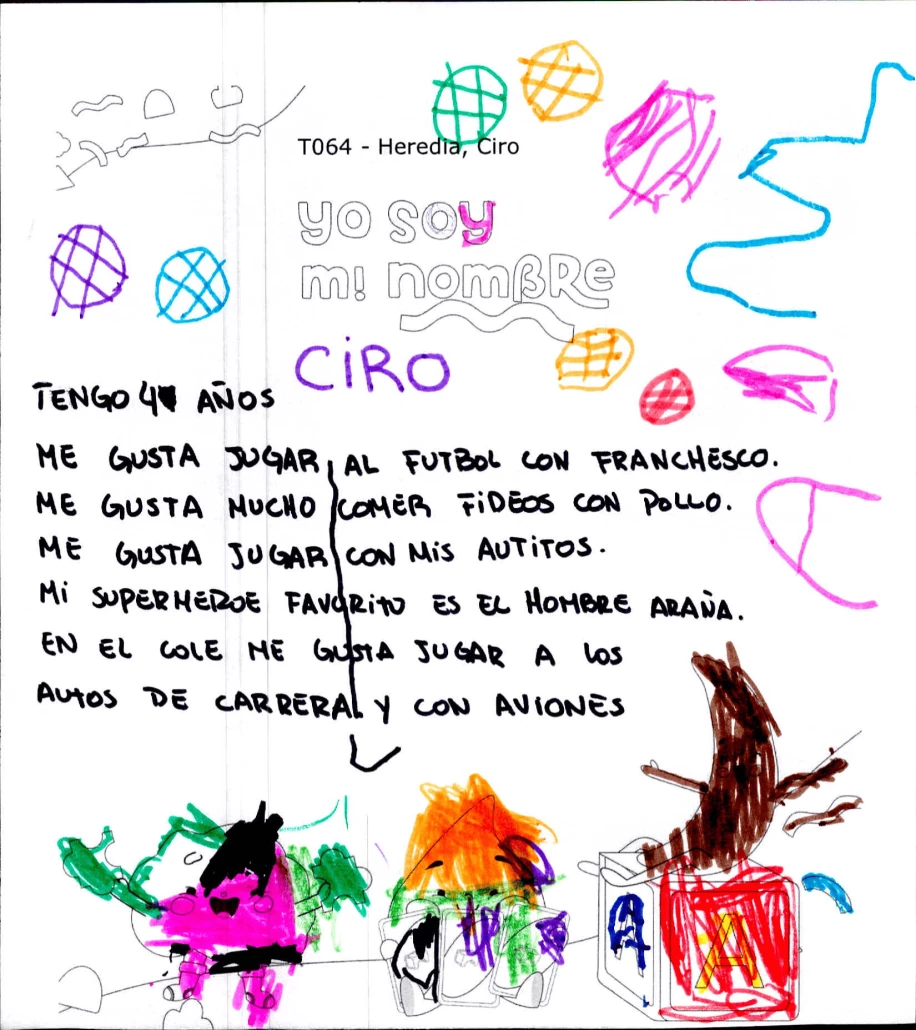 T064 - Heredia, Ciro
yo soy
mi nomBRe
CiRO
TENGO 4 AÑOS
ME GUSTA JUGAR AL FUTBOL CON FRANCHESCO.
ME GUSTA MUCHO COMER FiDEOS CON POLLO.
ME GUSTA JUGAR CON MiS AUTiTOS.
Mi SUPERHEROE FAVORiTO ES EL HOMBRE ARAÑA.
EN EL COLE ME GUSTA JUGAR A LOS
AUTOS DE CARRERA Y CON AViONES
A A